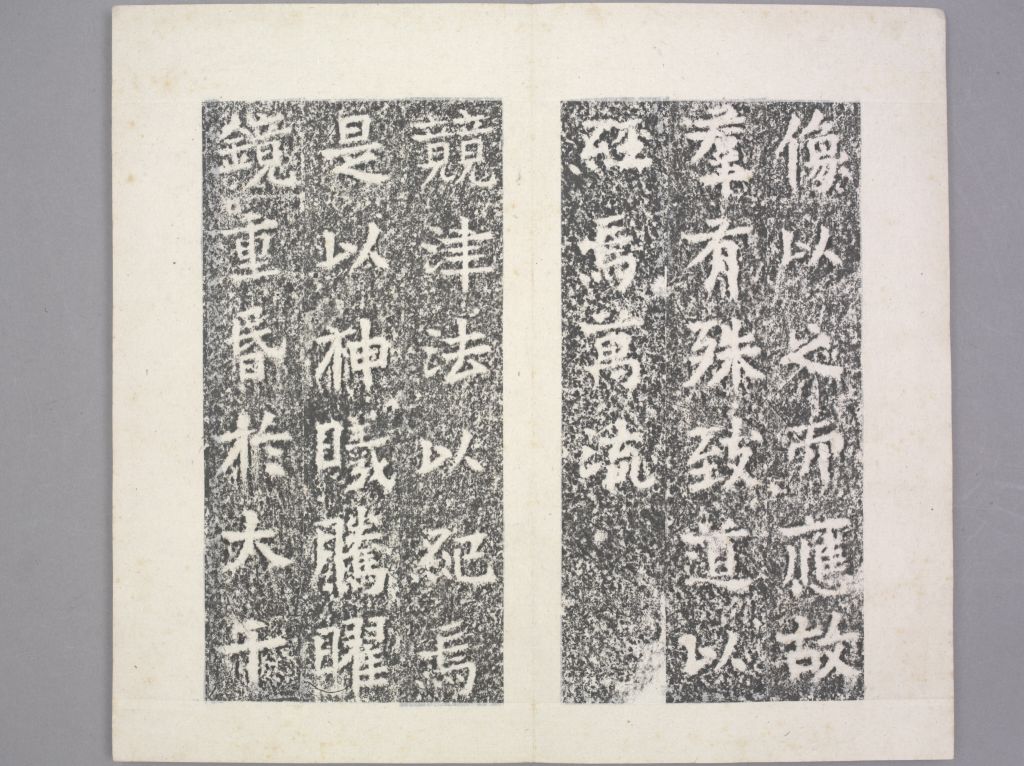 像以之而應故
羣有殊致道以
經焉萬流
競津法以紀焉
是以神曦騰曜
鏡重昬於大千